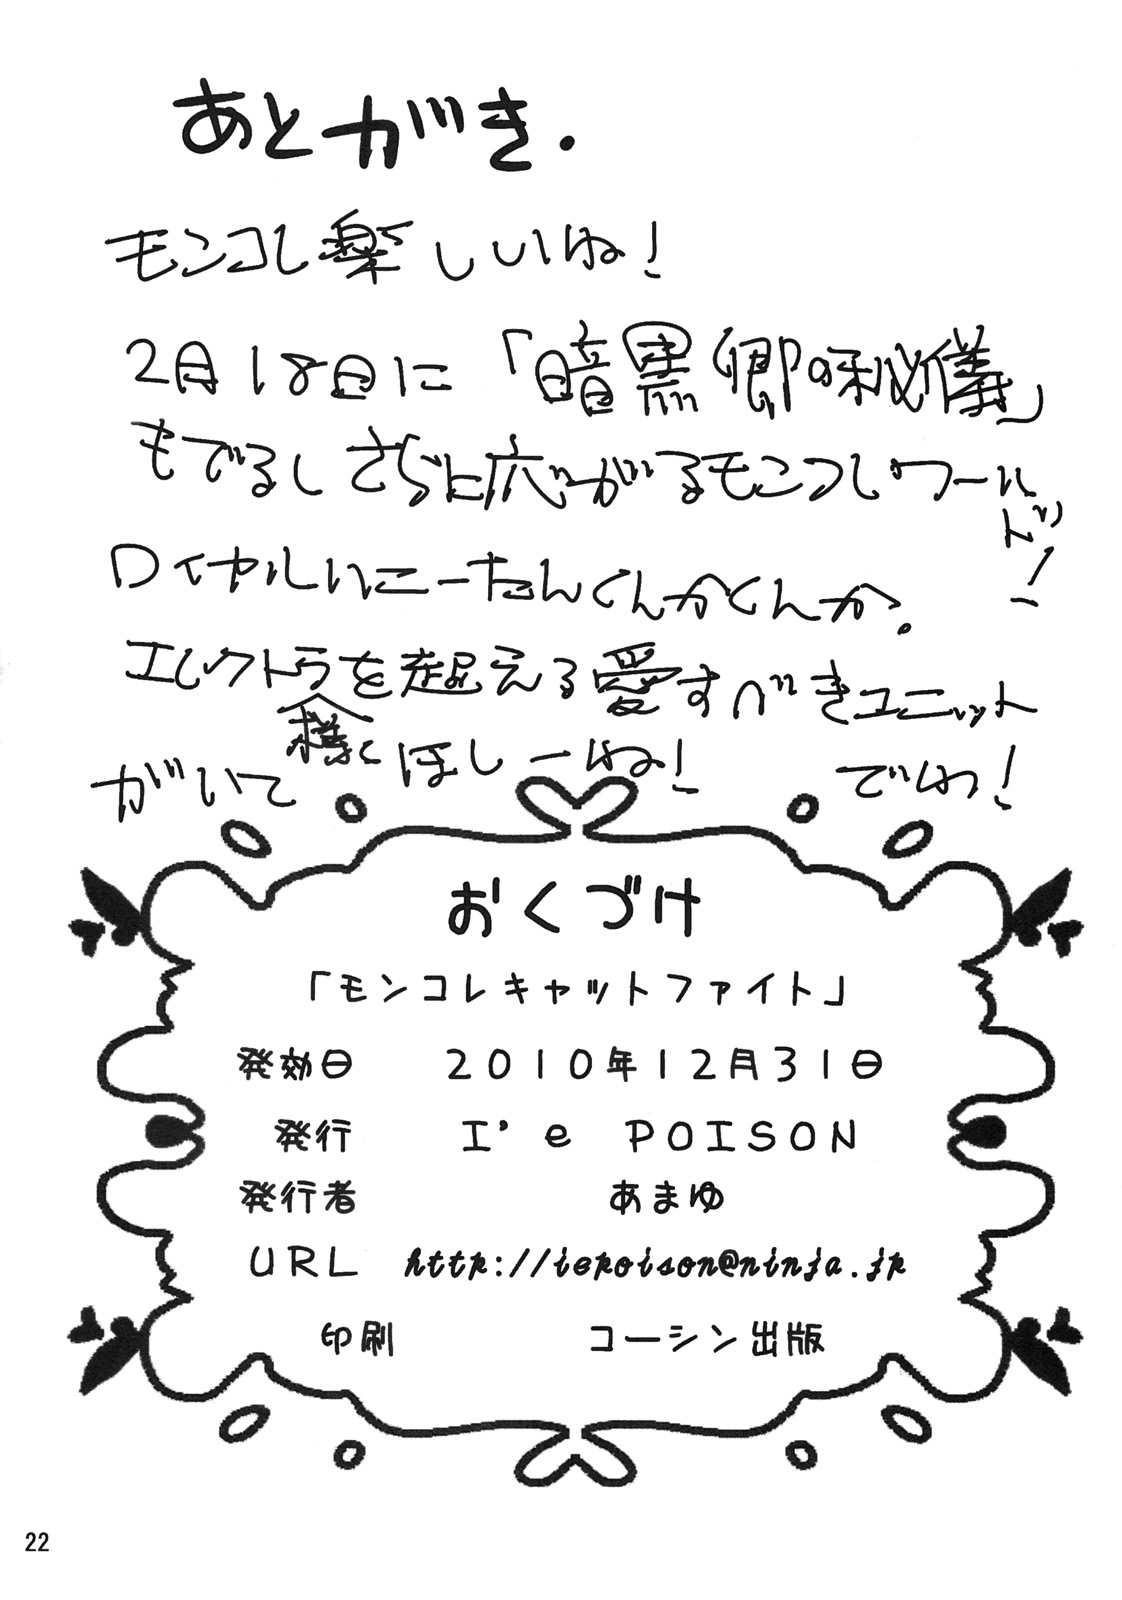 あとがき.
モンコレ楽しいね!
2月18日に「暗黒卿の秘儀」
もでるしさらに広がるモンコレワール
ドッ!
ロイヤルいこーたんくんかくんか。
エレクトラを超える愛すべきユニット
様
がいてほしーね! でわ!
おくづけ
「モンコレキャットファイト」
発効日 2010年12月31日
発行 I'e POISON
発行者 あまゆ
URL http://iepoison@ninja.jp
印刷 コーシン出版
22